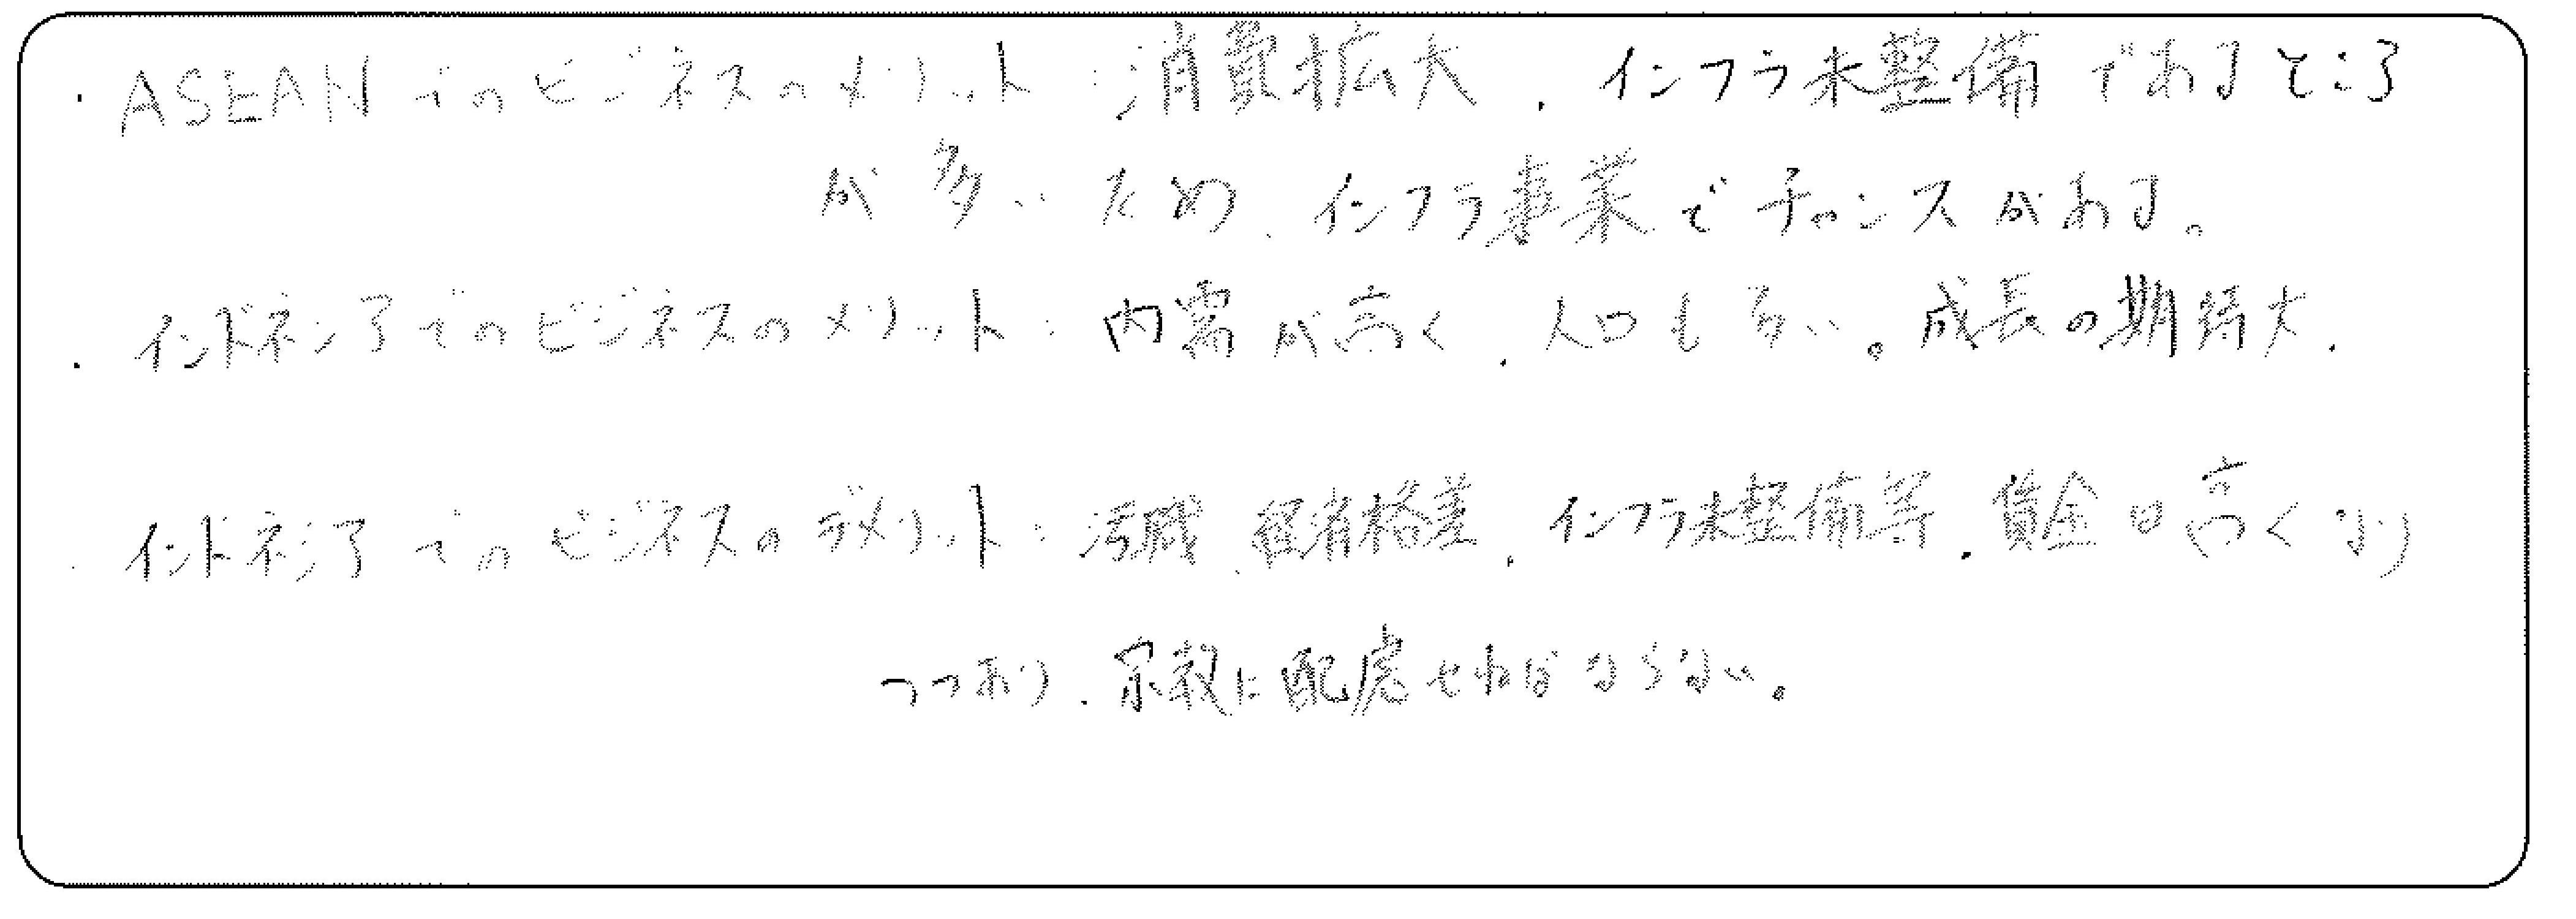 ・ASEANでのビジネスのメリット:消費拡大、インフラ未整備であるところ
が多いため、インフラ事業でチャンスがある。
・インドネシアでのビジネスのメリット:内需が高く、人口も多い。成長の期待大。
・インドネシアでのビジネスのデメリット:汚職、経済格差、インフラ未整備等、賃金は高くなり
つつあり、宗教に配慮せねばならない。